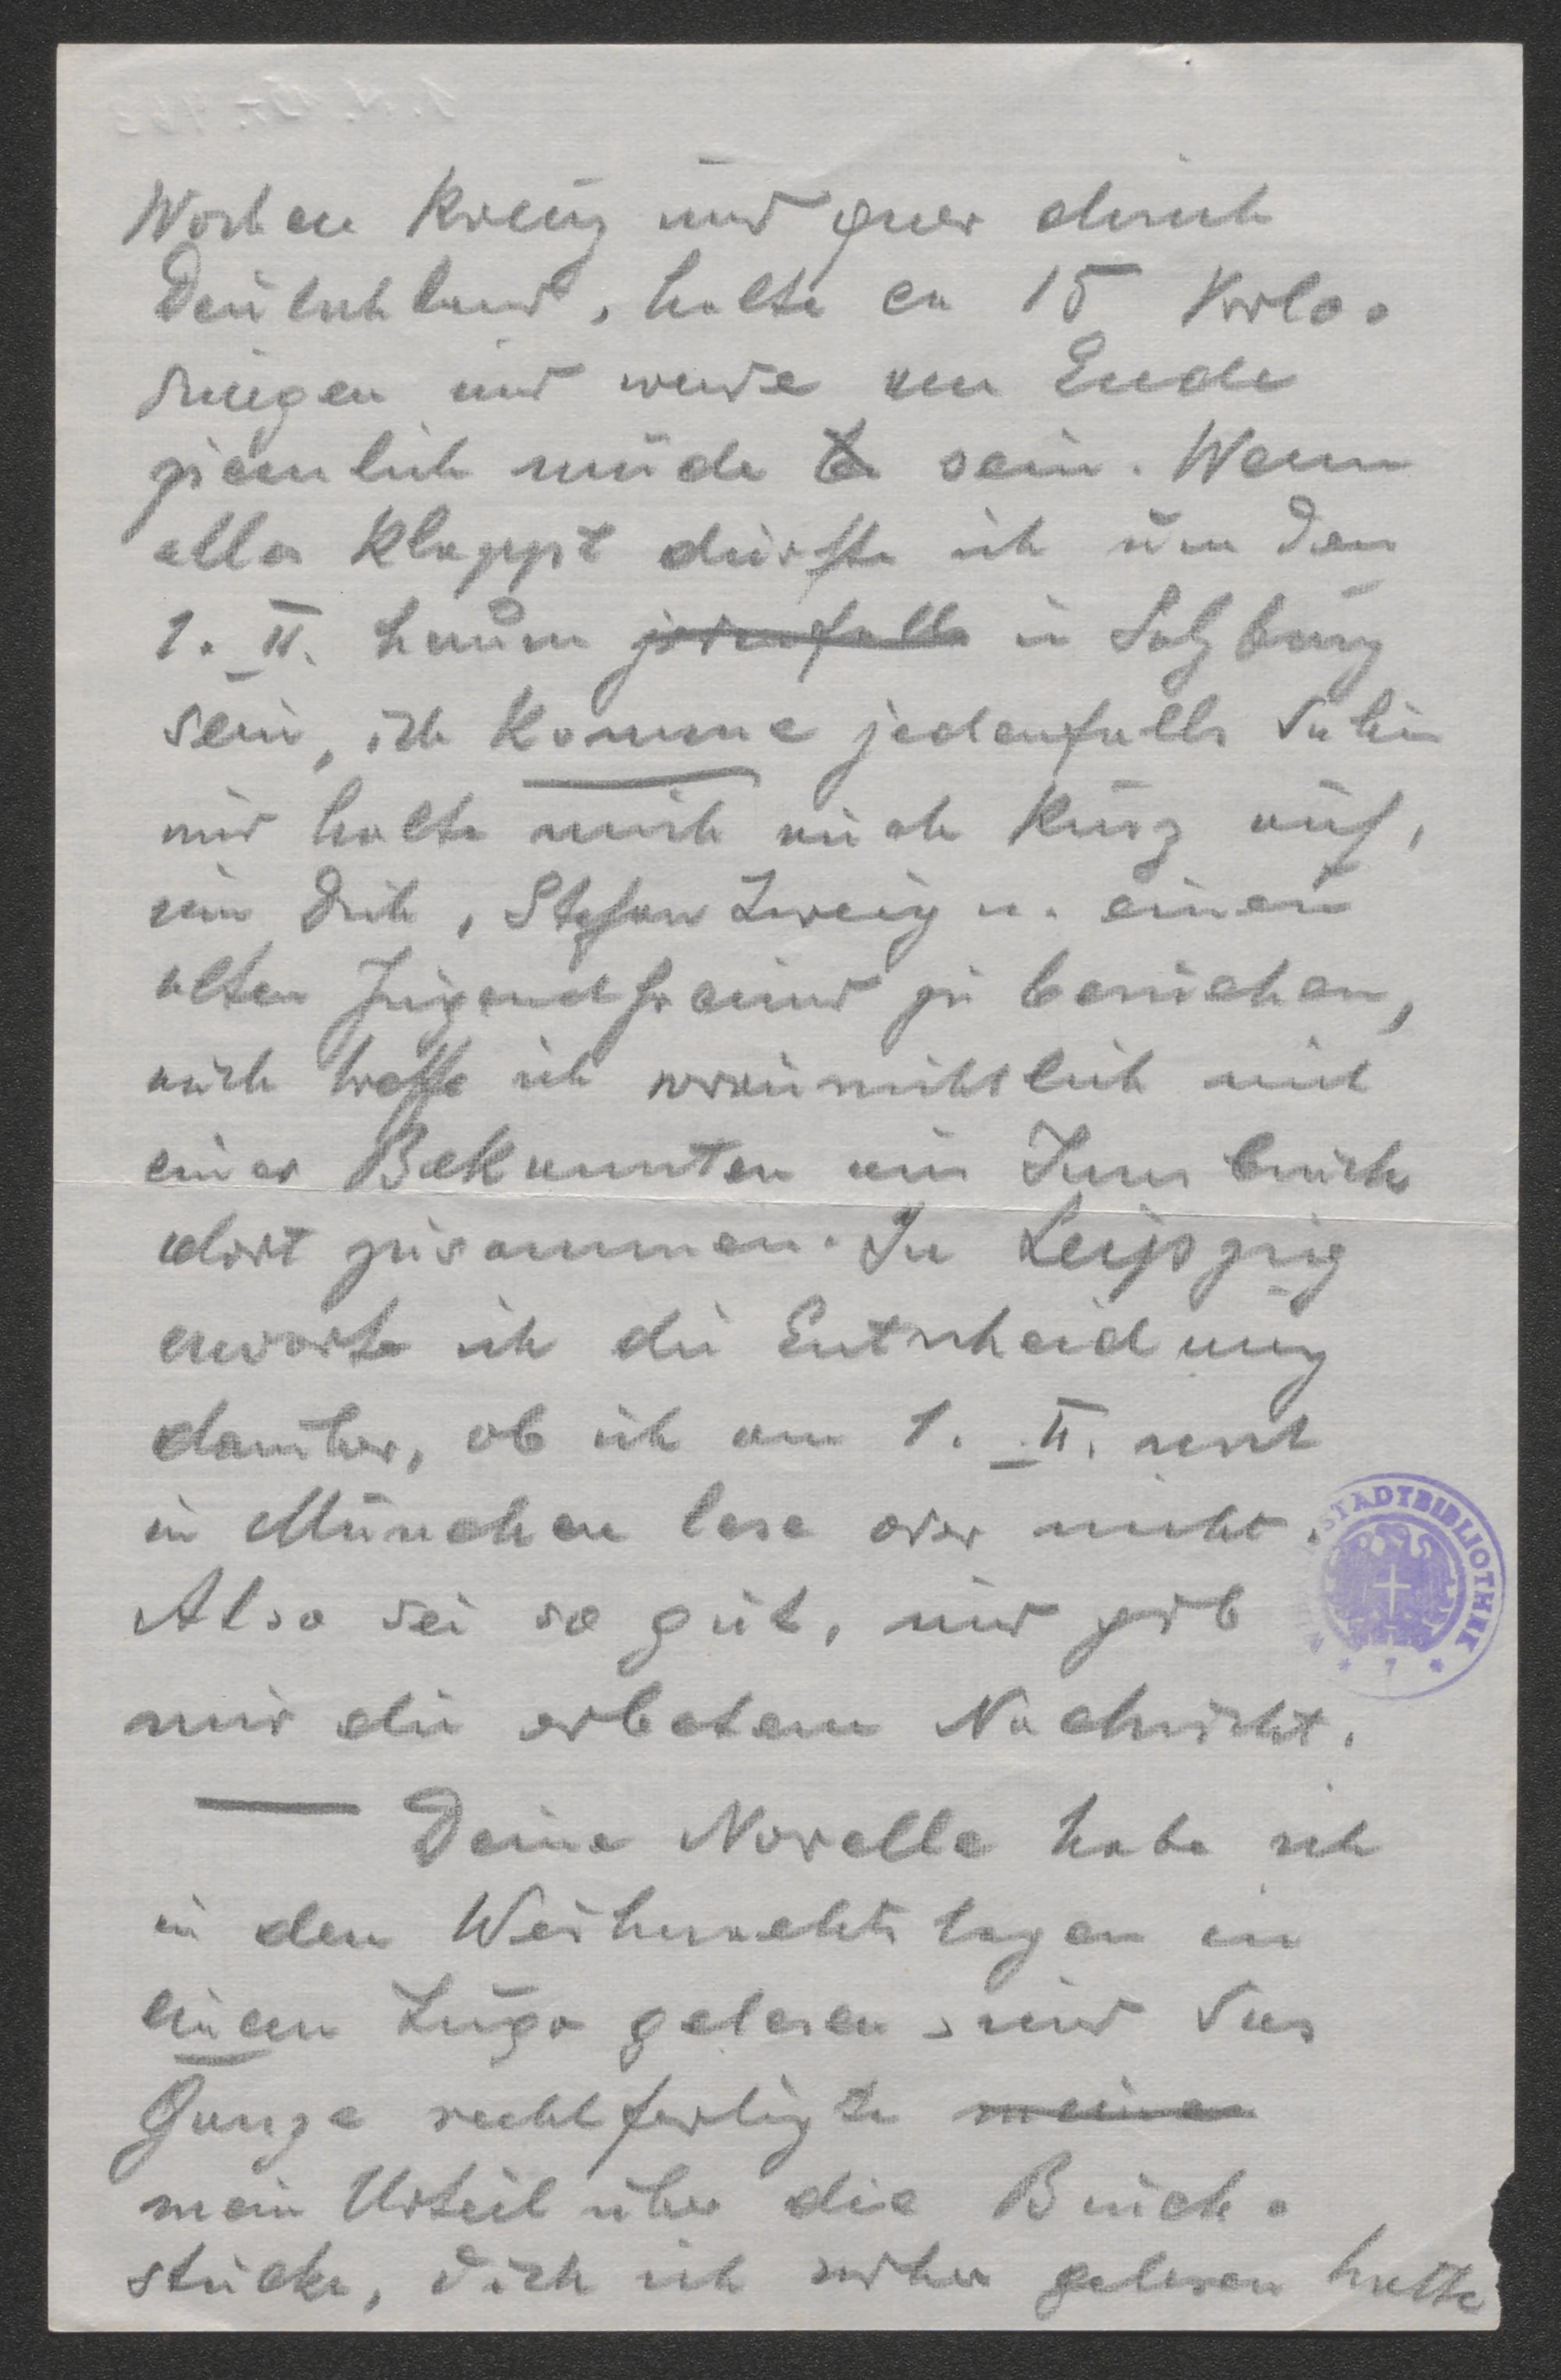 Wochen kreuz und quer durch
Deutschland, halte ca 15 Vorle-
sungen und werde am Ende
ziemlich müde sein. Wenn
alles klappt dürfte ich um den
1. II. herum jedenfalls in Salzburg
sein, ich komme jedenfalls dahin
und halte mich auch kurz auf,
um Dich, Stefan Zweig u. einen
alten Jugendfreund zu besuchen,
auch treffe ich voraussichtlich mit
einer Bekannten aus Innsbruck
dort zusammen. In Leipzig
erwarte ich die Entscheidung
darüber, ob ich am 1. II. erst
in München lese oder nicht.
Also sei so gut, und gib
mir die erbetene Nachricht.
— Deine Novelle habe ich
in den Weihnachtstagen in
einem Zuge gelesen, und das
Ganze rechtfertigte meinen
mein Urteil über die Bruch-
stücke, die ich vorher gelesen hatte
STADTBIBLIOTHEK
* 7 *